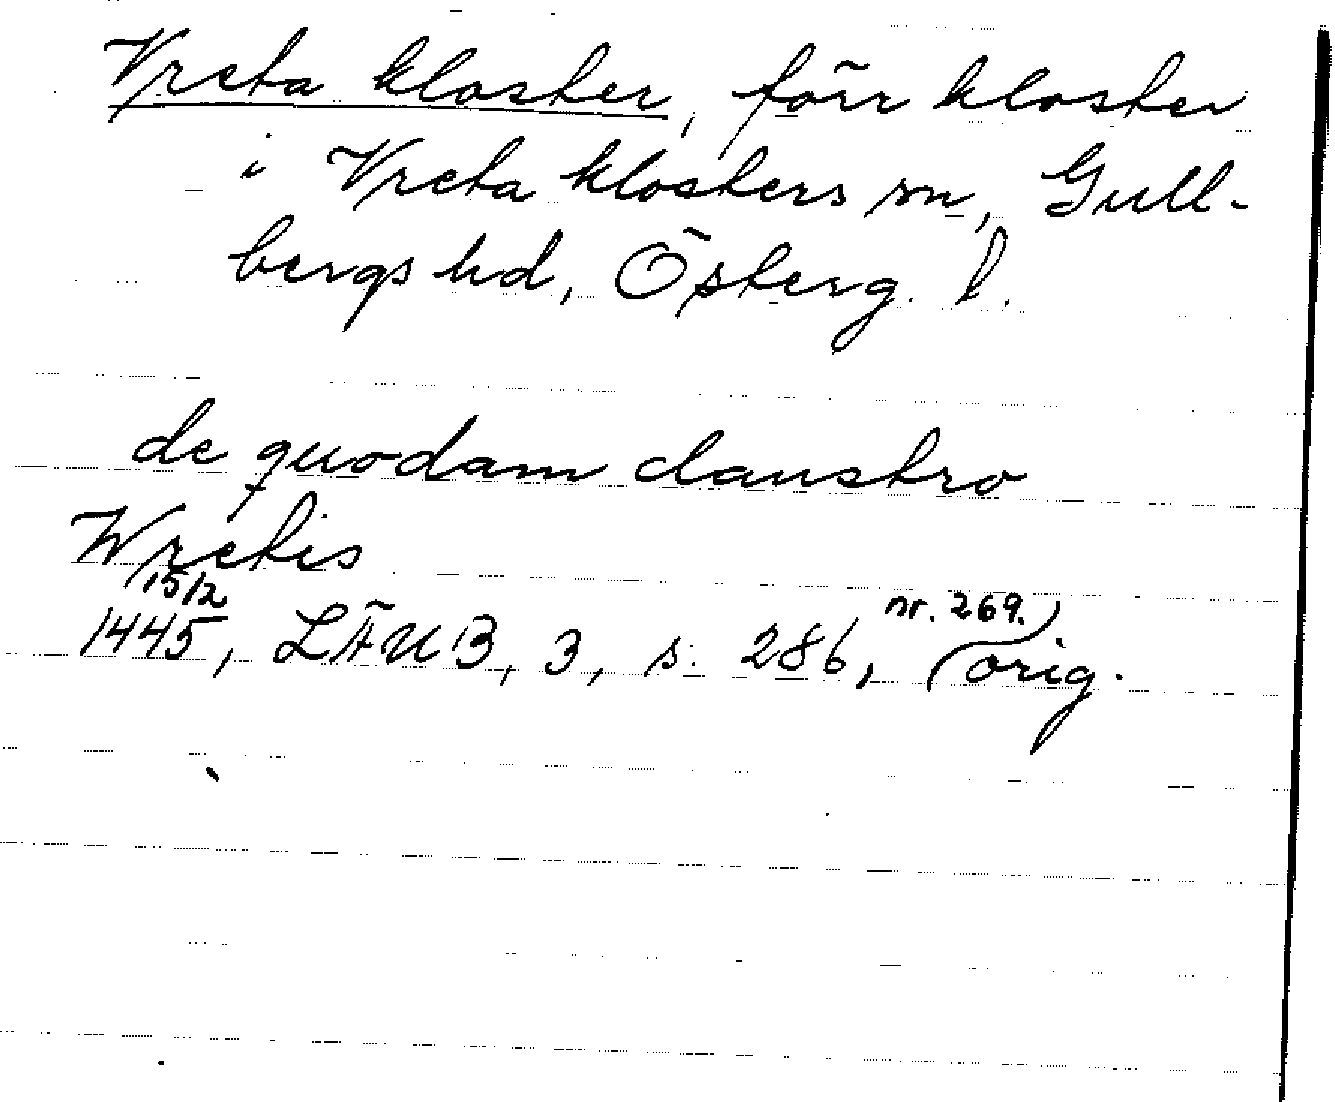 Vreta kloster, förr kloster
i Vreta klosters sn, Gull-
bergs hd, Österg. l.
de quodam claustro
Wretis
15/2
1445, LÄUB, 3, s. 286, nr. 269. orig.